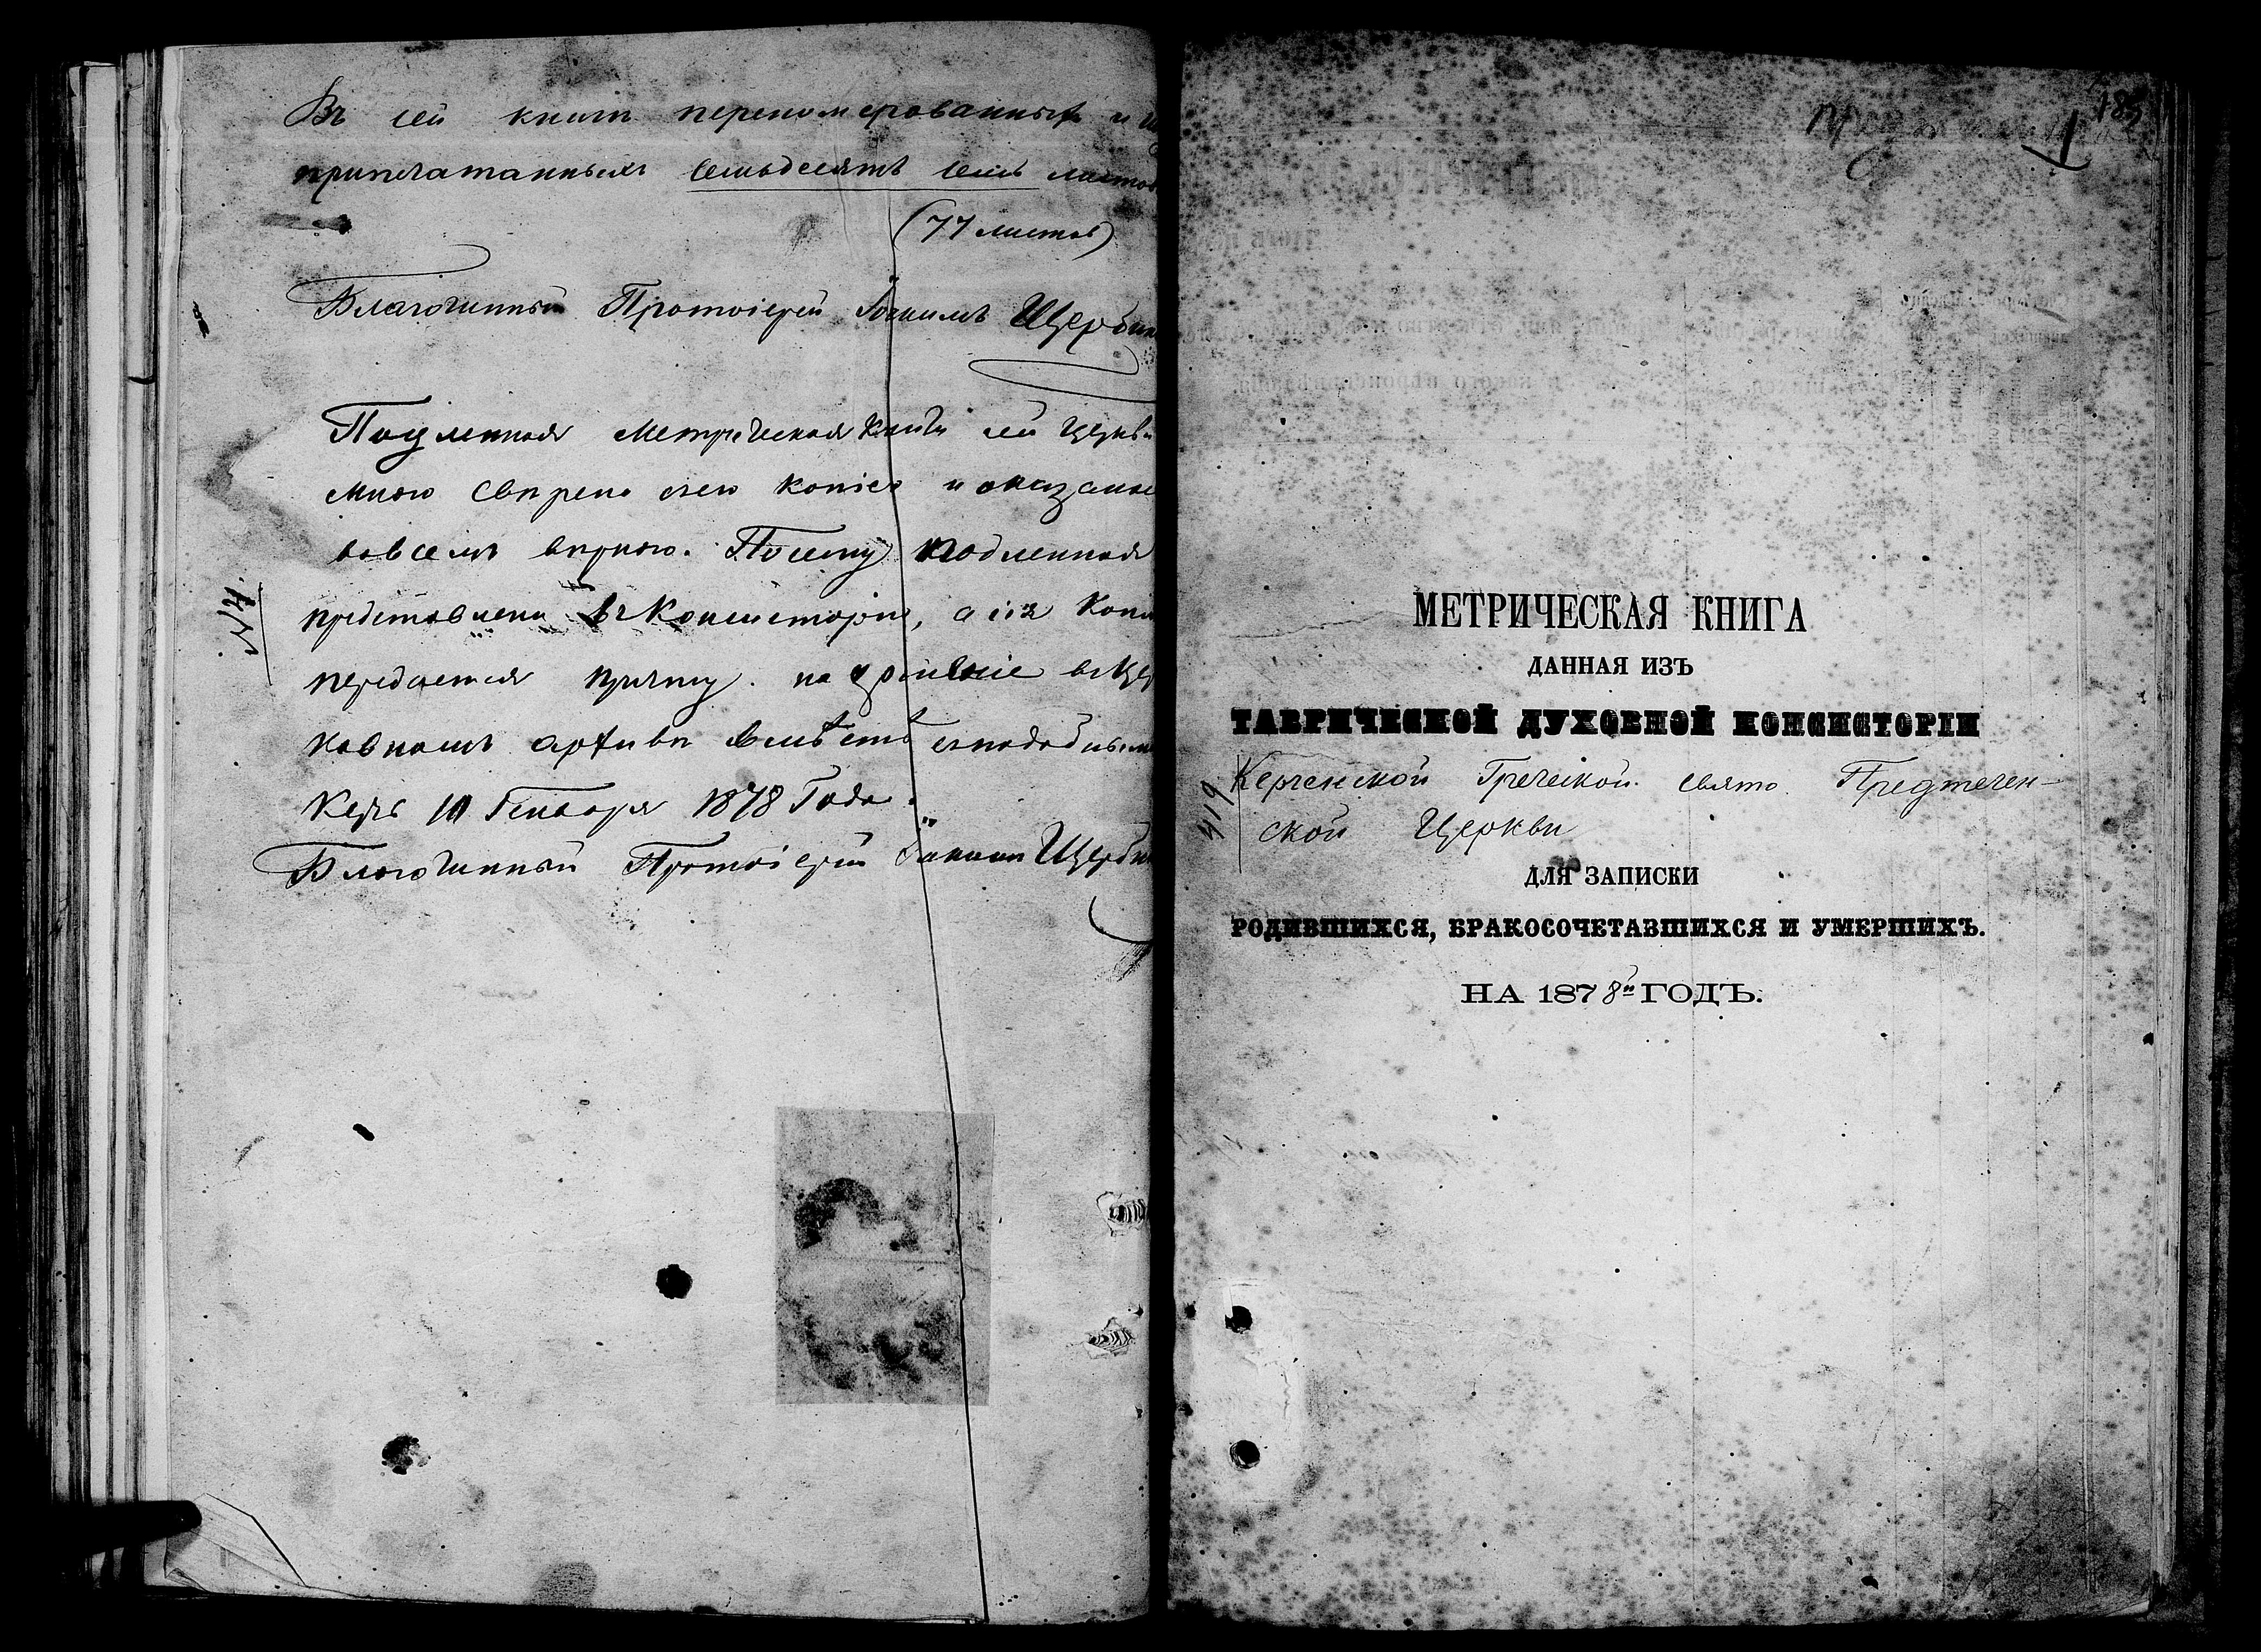 Въ сей книгѣ перенумерованныхъ и
припечатанныхъ семьдесятъ семь листов
(77 листовъ)
Благочинный Протоіерей Іоакимъ Щербин
Подленная Метрическая книга сей Церкви
мною свѣрена съ ея копіею и оказалас
вовсемъ вѣрною. Посему подленная
представлена въ Консисторію, а сія копія
передается причту на храненіе въ Цер
ковномъ архивѣ вмѣстѣ съ подобным
Керчь 10 Генваря 1878 Года.
Благочинный Протоіерей Іоакимъ Щербин
№ 14
185
1
МЕТРИЧЕСКАЯ КНИГА
ДАННАЯ ИЗЪ
ТАВРИЧЕСКОЙ ДУХОВНОЙ КОНСИСТОРІИ
Керченской Греческой Свято Предтечен-
ской Церкви
419
ДЛЯ ЗАПИСКИ
РОДИВШИХСЯ, БРАКОСОЧЕТАВШИХСЯ И УМЕРШИХЪ.
НА 1878й ГОДЪ.